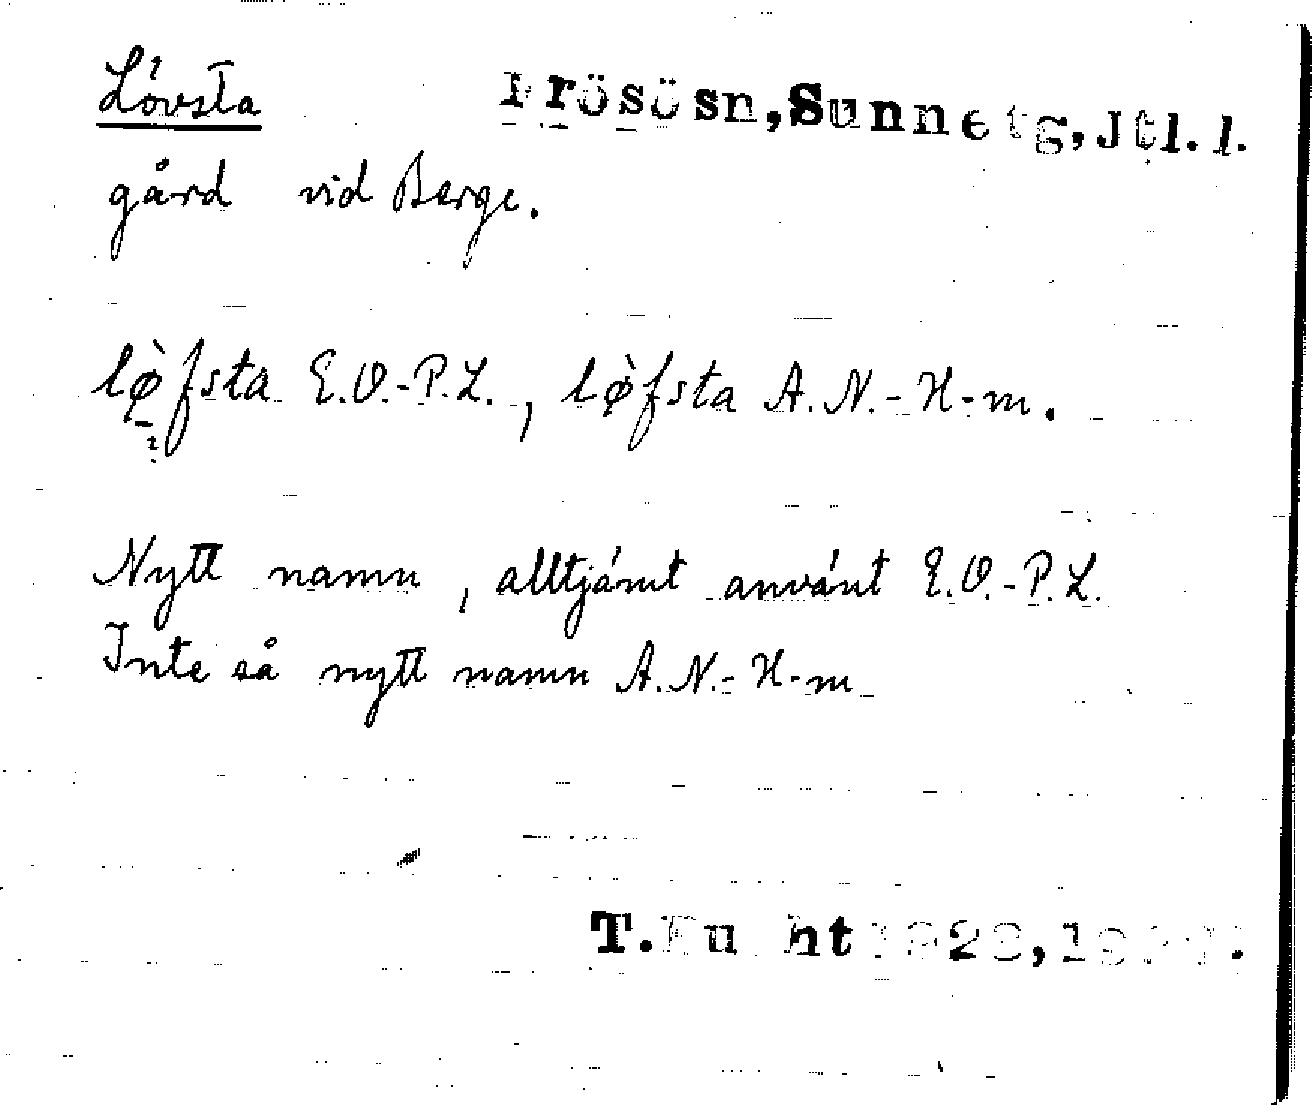 Lövsta Frösö sn, Sunne tg, Jtl. l.
gård vid Berge.
lø̀fsta E.O.-P.L., lø̀fsta A.N.-H-m.
Nytt namn, alltjämt använt E.O.-P.L.
Inte så nytt namn A.N.-H-m
T.